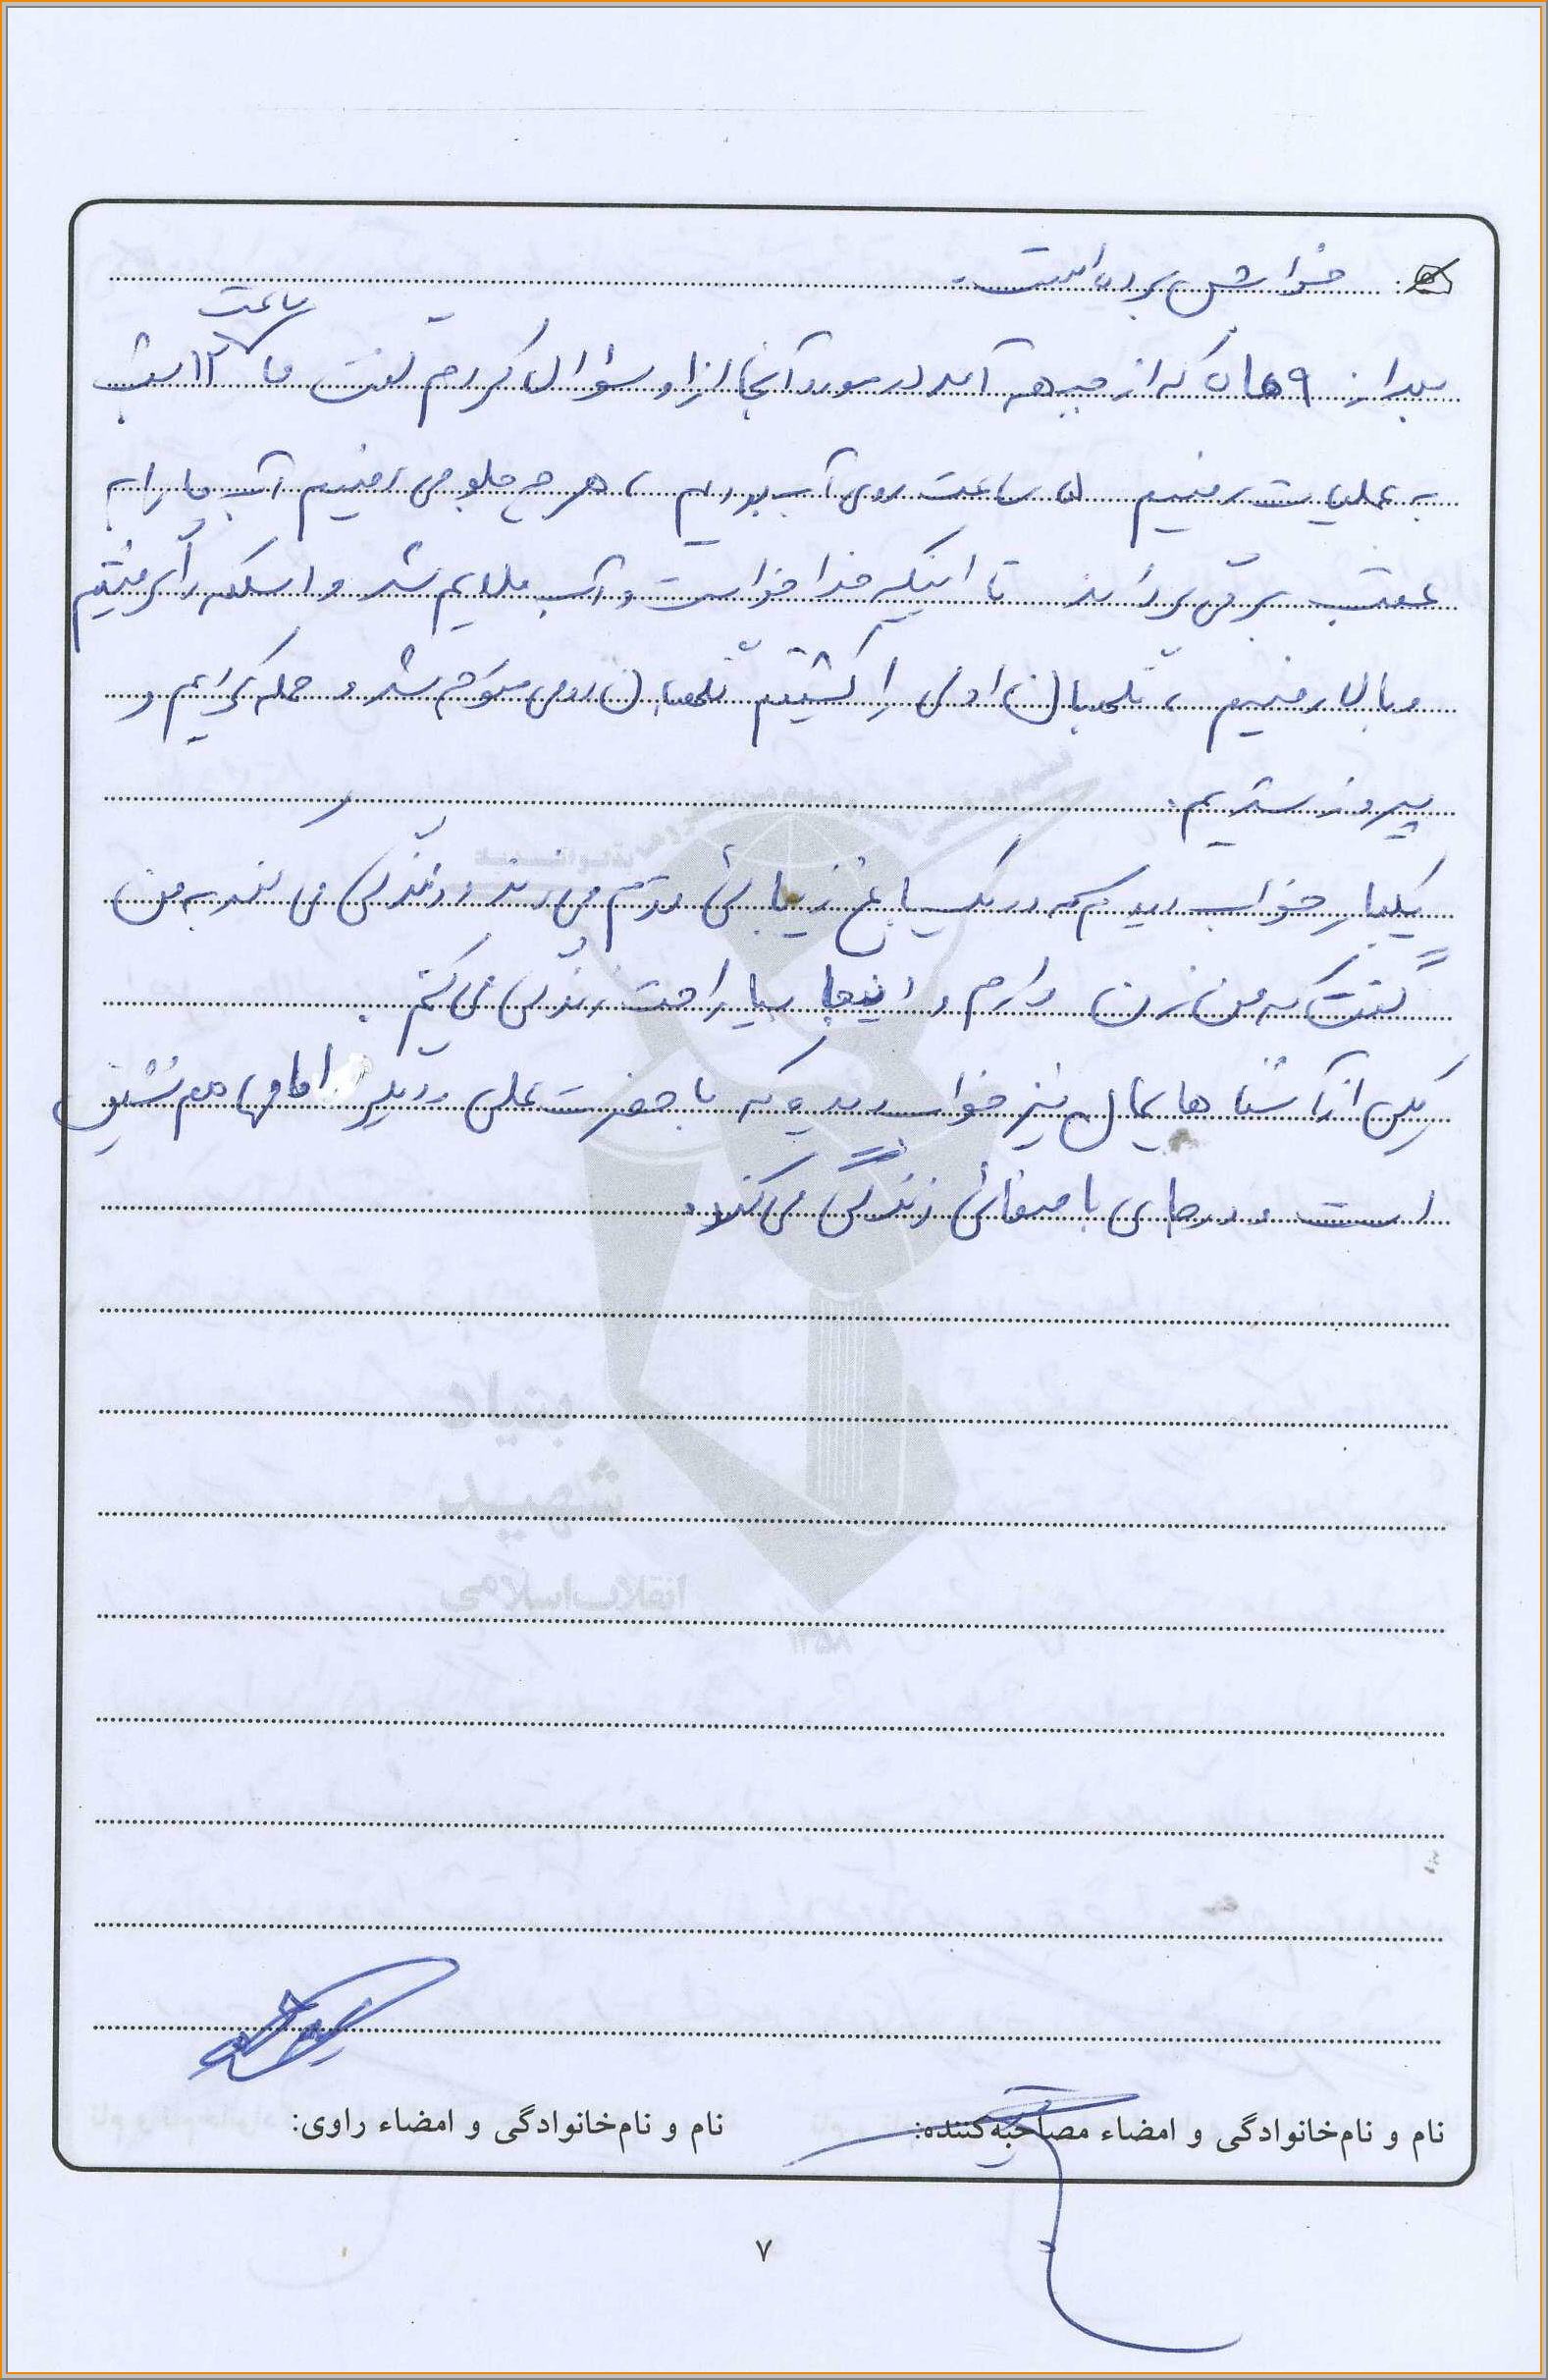 خوابش برده است.
بعد از ۹ ماه که از جبهه آمد در مورد آنجا از او سؤال کردم گفت ما ساعت ۱۲ شب
به عملیات رفتیم ساعت روی آب بودیم، هر چه جلو می رفتیم آب ما را به
عقب بر می گرداند تا اینکه خدا خواست و آب ملایم شد و اسکله را گرفتیم
و بالا رفتیم، نگهبان اولی را کشتیم نگهبان دومی متوجه شد و حمله کردیم و
پیروز شدیم.
یکبار خواب دیدم که در یک باغ زیبائی قدم می زند و زندگی می کند به من
گفت که من زن دارم و اینجا بسیار راحت زندگی می کنم.
یکی از آشناهایمان نیز خواب دیده که با حضرت علی و دیگر امامها هم نشین
است و در جای با صفائی زندگی می کند.
بنیاد
شهید
انقلاب اسلامی
۱۳۵۸
نام و نام‌خانوادگی و امضاء مصاحبه‌کننده:
نام و نام‌خانوادگی و امضاء راوی:
۷